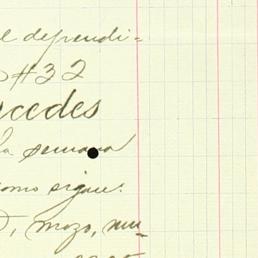 el dependi=
#32
cedes
la semana
como sigue:
, mozo, mu-